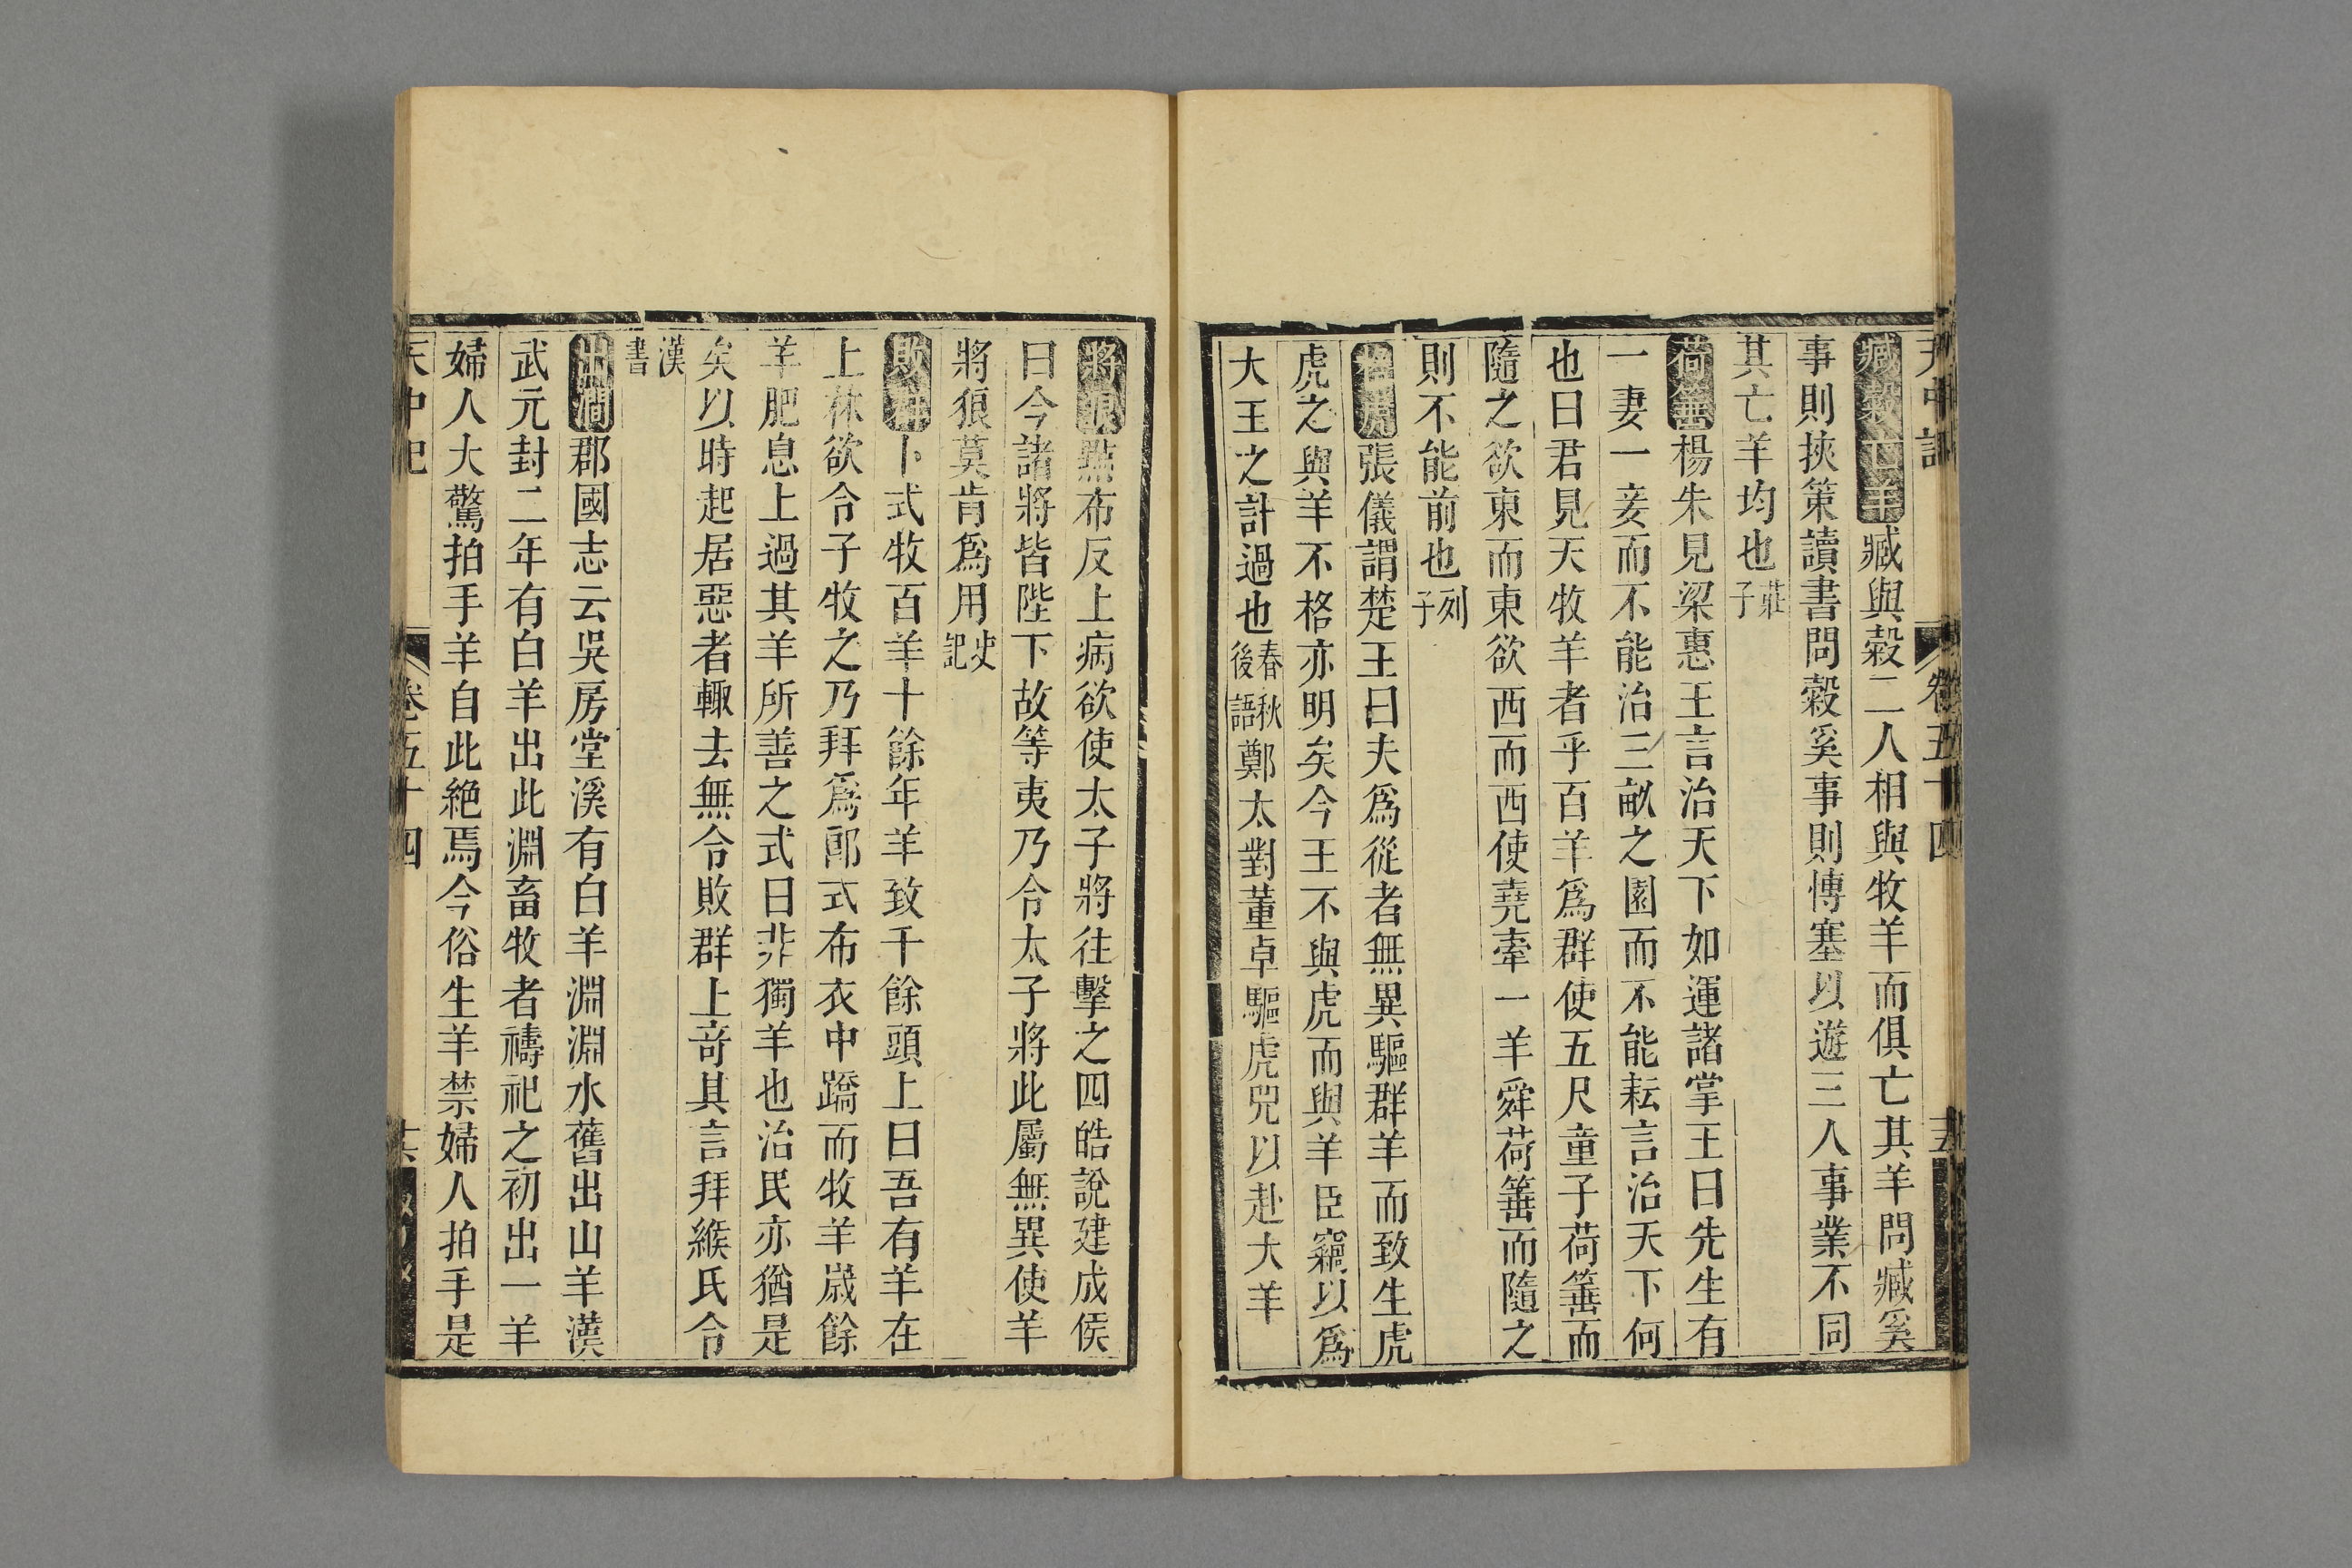 天中記 卷五十四 五
臧穀亡羊臧與穀二人相與牧羊而俱亡其羊問臧奚
事則挾策讀書問穀奚事則博塞以遊二人事業不同
其亡羊均也莊子
荷箠楊朱見梁惠王言治天下如運諸掌王曰先生有
一妻一妾而不能治三畝之園而不能耘言治天下何
也曰君見夫牧羊者乎百羊爲群使五尺童子荷箠而
隨之欲東而東欲西而西使堯牽一羊舜荷箠而隨之
則不能前也列子
格虎張儀謂楚王曰夫爲從者無異驅群羊而致生虎
虎之與羊不格亦明矣今王不與虎而與羊臣竊以爲
大王之計過也春秋後語鄭太對董卓驅虎兕以赴犬羊
將狼黥布反上病欲使太子將往擊之四皓說建成侯
曰今諸將皆陛下故等夷乃令太子將此屬無異使羊
將狼莫肯爲用史記
敗群卜式牧百羊十餘年羊致千餘頭上曰吾有羊在
上林欲令子牧之乃拜爲郎式布衣中蹻而牧羊歲餘
羊肥息上過其羊所善之式曰非獨羊也治民亦猶是
矣以時起居惡者輒去無令敗群上奇其言拜緱氏令
漢書
出澗郡國志云吳房堂溪有白羊淵淵水舊出山羊漢
武元封二年有白羊出此淵畜牧者禱祀之初出一羊
婦人大驚拍手羊自此絕焉今俗生羊禁婦人拍手是
天中記 卷五十四